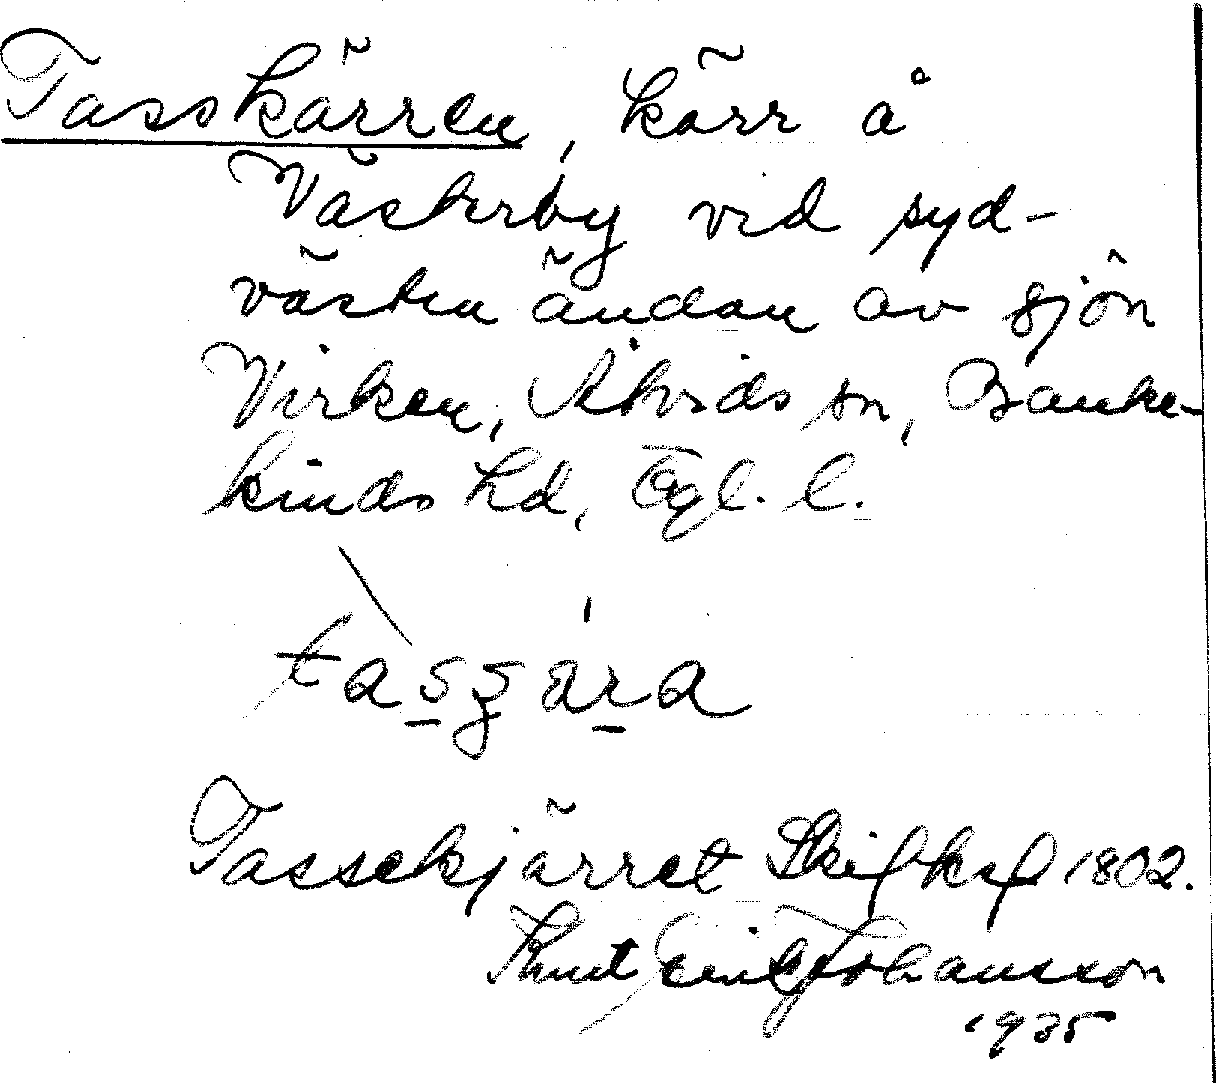 Tasskärren, kärr å
Västerby vid syd-
västra ändan av sjön
Virken, Åtvids sn, Banke-
kinds hd, Ögl. l.
Tassekjärret Skifkspl 1802.
Knut Erik Johansson
1935